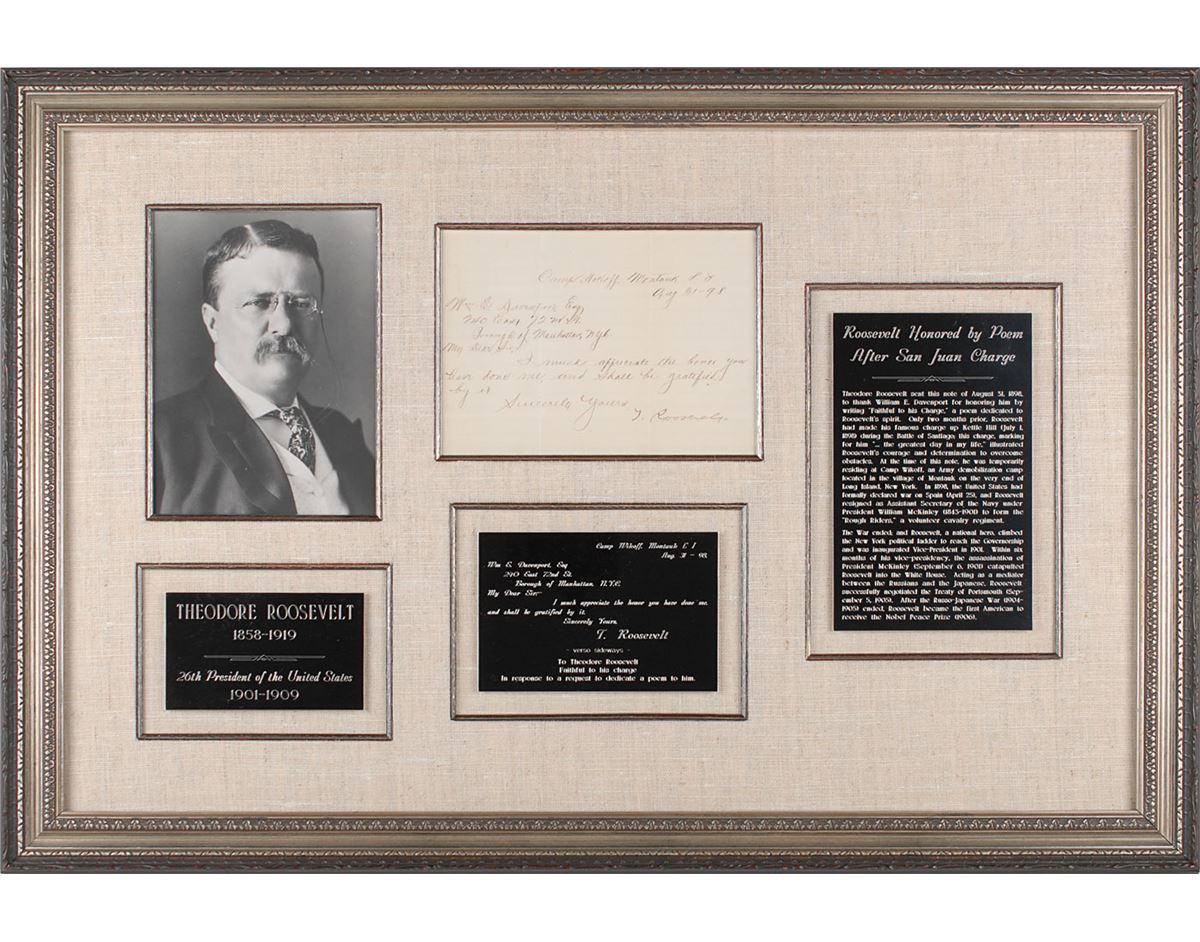 Camp Wikoff, Montauk L I
Aug 31-98
Wm E. Davenport, Esq
240 East 72nd St.
Borough of Manhattan, NYC.
My Dear Sir:
I much appreciate the honor you
have done me, and shall be gratified
by it
Sincerely Yours
T. Roosevelt
THEODORE ROOSEVELT
1858-1919
26th President of the United States
1901-1909
Camp Wikoff, Montauk L I
Aug. 31 - 98.
Wm E. Davenport, Esq
240 East 72nd St.
Borough of Manhattan, N.Y.C.
My Dear Sir:-
I much appreciate the honor you have done me,
and shall be gratified by it.
Sincerely Yours,
T. Roosevelt
- verso sideways -
To Theodore Roosevelt
Faithful to his charge
In response to a request to dedicate a poem to him.
Roosevelt Honored by Poem
After San Juan Charge
Theodore Roosevelt sent this note of August 31, 1898,
to thank William E. Davenport for honoring him by
writing "Faithful to his Charge," a poem dedicated to
Roosevelt's spirit. Only two months prior, Roosevelt
had made his famous charge up Kettle Hill (July 1,
1898) during the Battle of Santiago; this charge, marking
for him "... the greatest day in my life," illustrated
Roosevelt's courage and determination to overcome
obstacles. At the time of this note, he was temporarily
residing at Camp Wikoff, an Army demobilization camp
located in the village of Montauk on the very end of
Long Island, New York. In 1898, the United States had
formally declared war on Spain (April 25), and Roosevelt
resigned as Assistant Secretary of the Navy under
President William McKinley (1843-1901) to form the
"Rough Riders," a volunteer cavalry regiment.
The War ended; and Roosevelt, a national hero, climbed
the New York political ladder to reach the Governorship
and was inaugurated Vice-President in 1901. Within six
months of his vice-presidency, the assassination of
President McKinley (September 6, 1901) catapulted
Roosevelt into the White House. Acting as a mediator
between the Russians and the Japanese, Roosevelt
successfully negotiated the Treaty of Portsmouth (Sep-
tember 5, 1905). After the Russo-Japanese War (1904-
1905) ended, Roosevelt became the first American to
receive the Nobel Peace Prize (1906).